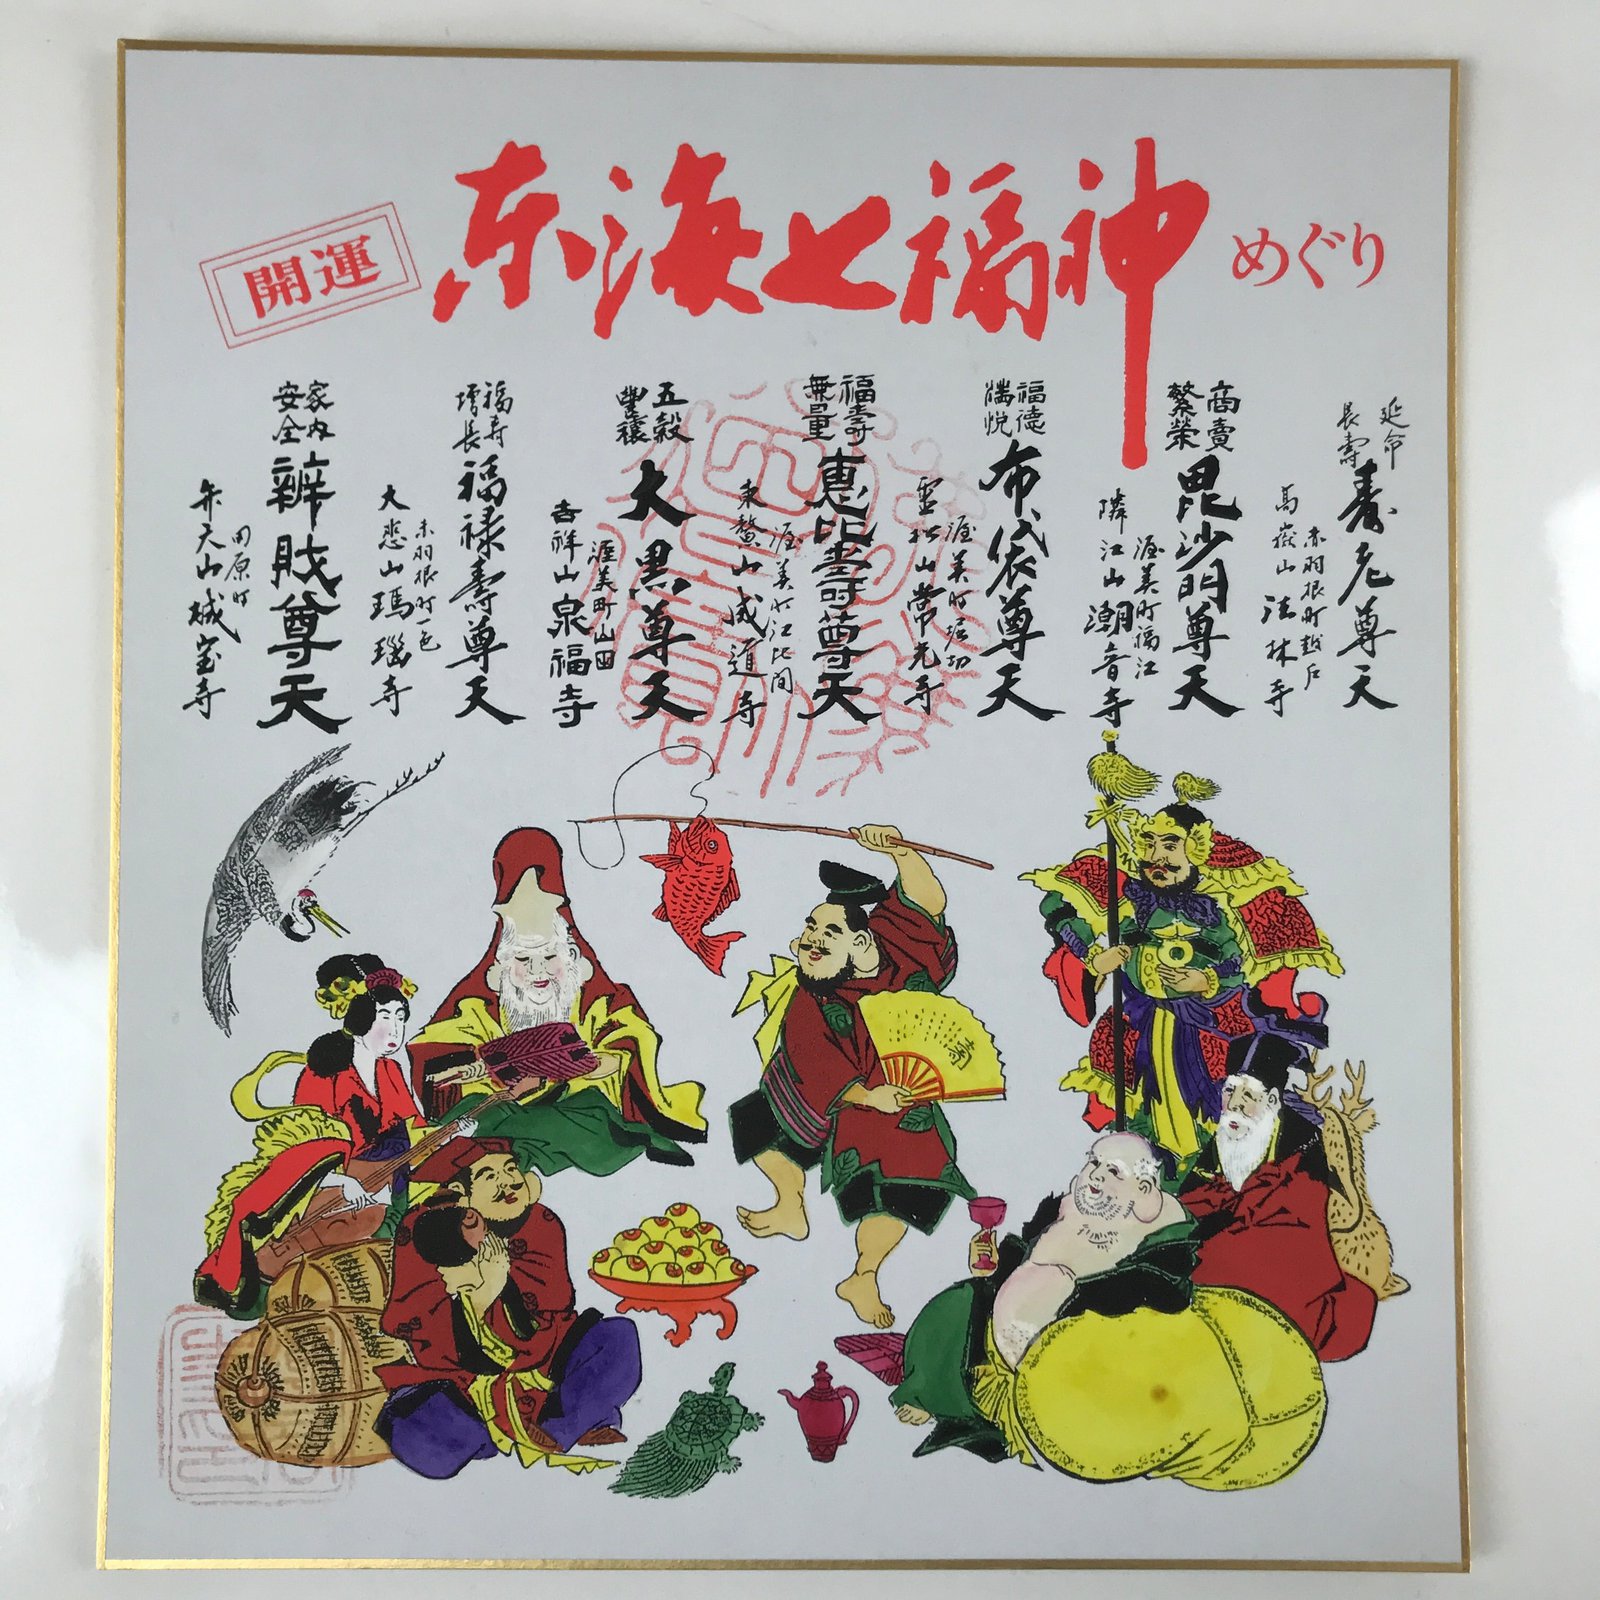 開運
东海七福神
めぐり
延命
長寿
寿老尊天
赤羽根町越戸
高嶽山 法林寺
商賣
繁榮
毘沙門尊天
渥美町福江
隣江山 潮音寺
福徳
満悦
布袋尊天
渥美町堀切
霊松山 常光寺
福壽
無量
惠比壽尊天
渥美町江比間
東鰲山 成道寺
五穀
豊穣
大黒尊天
渥美町山田
吉祥山 泉福寺
福寿
増長
福禄壽尊天
赤羽根町一色
大悲山 瑪瑙寺
家内
安全
辨財尊天
田原町
弁天山 城宝寺